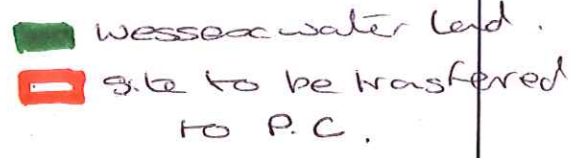 wessex water land.
site to be transferred
to P.C.